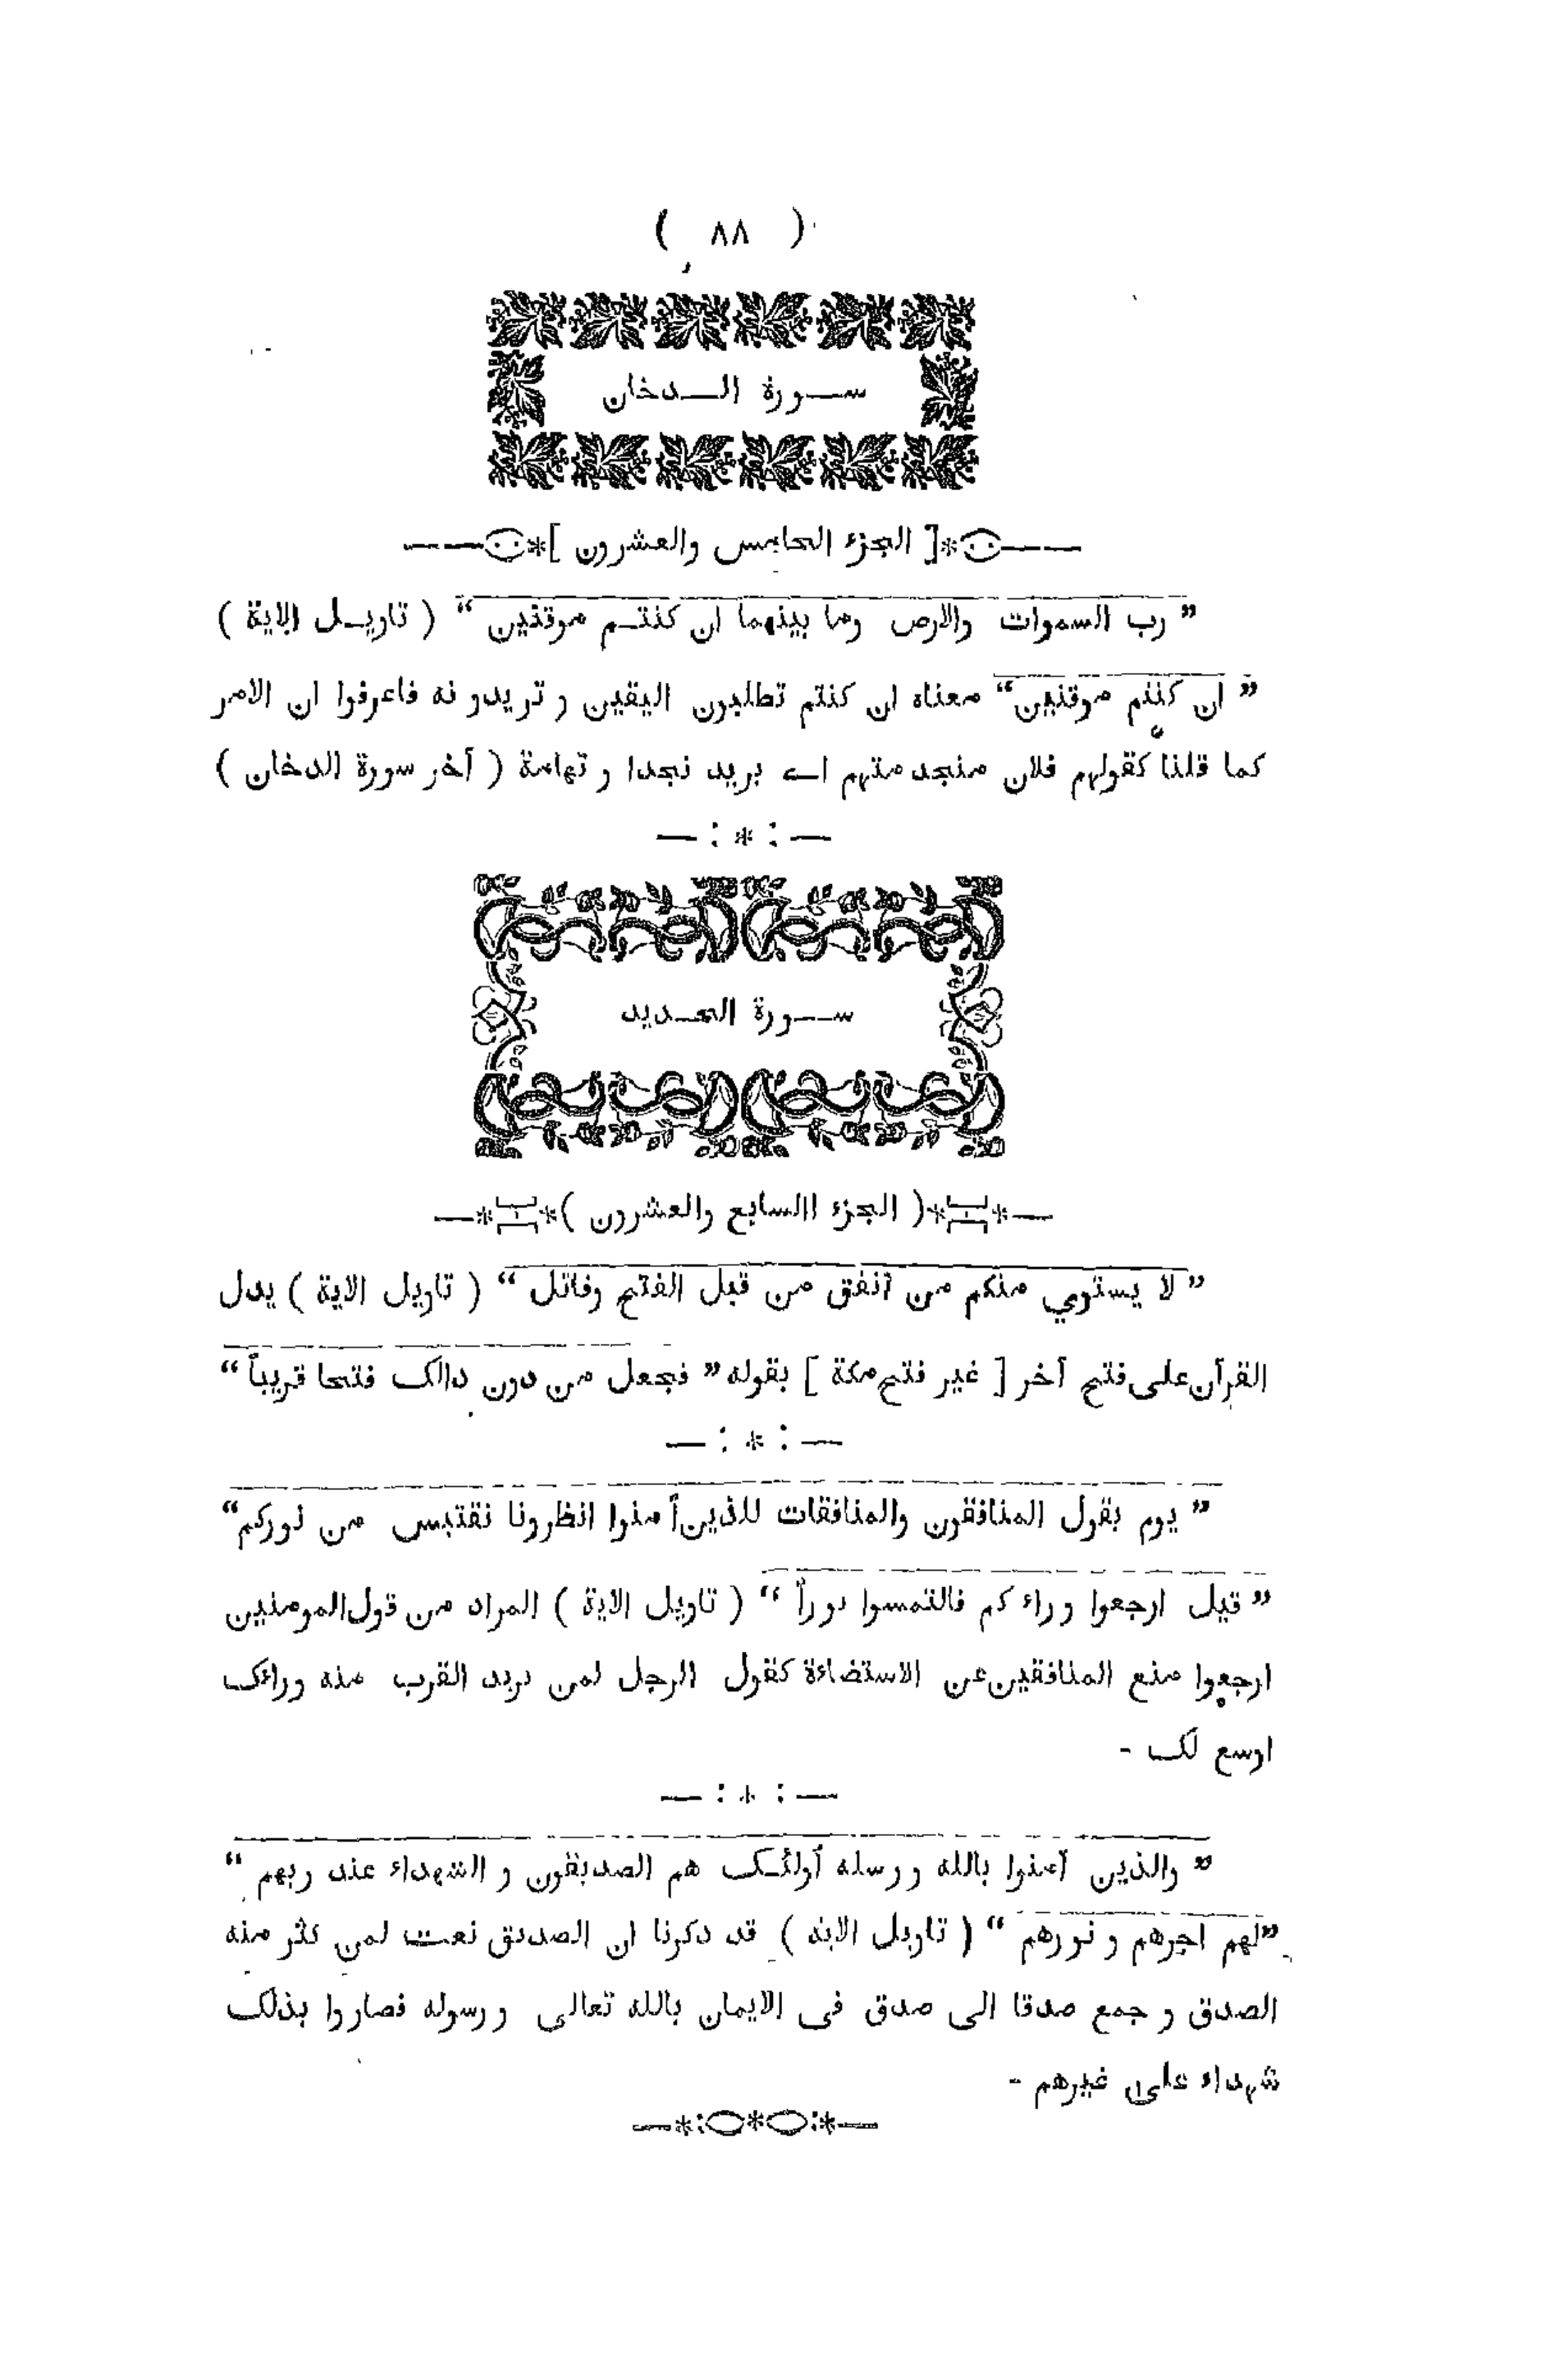 ( ٨٨ )
ســـورة الـــدخان
[ الجزء الخامس والعشرون ]
” رب السموات والارض وما بينهما ان كنتــم موقنين “ ( تاويــل الاية )
” ان كنتم موقنين “ معناه ان كنتم تطلبون اليقين و تريدو نه فاعرفوا ان الامر
كما قلنا كقولهم فلان منجد متهم اے يريد نجدا و تهامة ( آخر سورة الدخان )
— : * : —
ســـورة الحــديد
( الجزء االسابع والعشرون )
” لا يستوي منكم من آنفق من قبل الفتح وقاتل “ ( تاويل الاية ) يدل
القرآن على فتح آخر [ غير فتح مكة ] بقوله ” فجعل من دون ذالك فتحا قريباً “
— : * : —
” يوم يقول المنافقون والمنافقات للذين آ منوا انظرونا نقتبس من نوركم “
” قيل ارجعوا وراء كم فالتمسوا نوراً “ ( تاويل الاية ) المراد من قول المومنين
ارجعوا منع المنافقين عن الاستضاءة كقول الرجل لمن يريد القرب منه وراءك
اوسع لك -
— : * : —
” والذين آمنوا بالله ورسله آولئــك هم الصديقون و الشهداء عند ربهم “
” لهم اجرهم و نورهم “ ( تاويل الاية ) قد ذكرنا ان الصديق نعت لمن كثر منه
الصدق و جمع صدقا الى صدق فى الايمان بالله تعالى ورسوله فصاروا بذلك
شهداء على غيرهم -